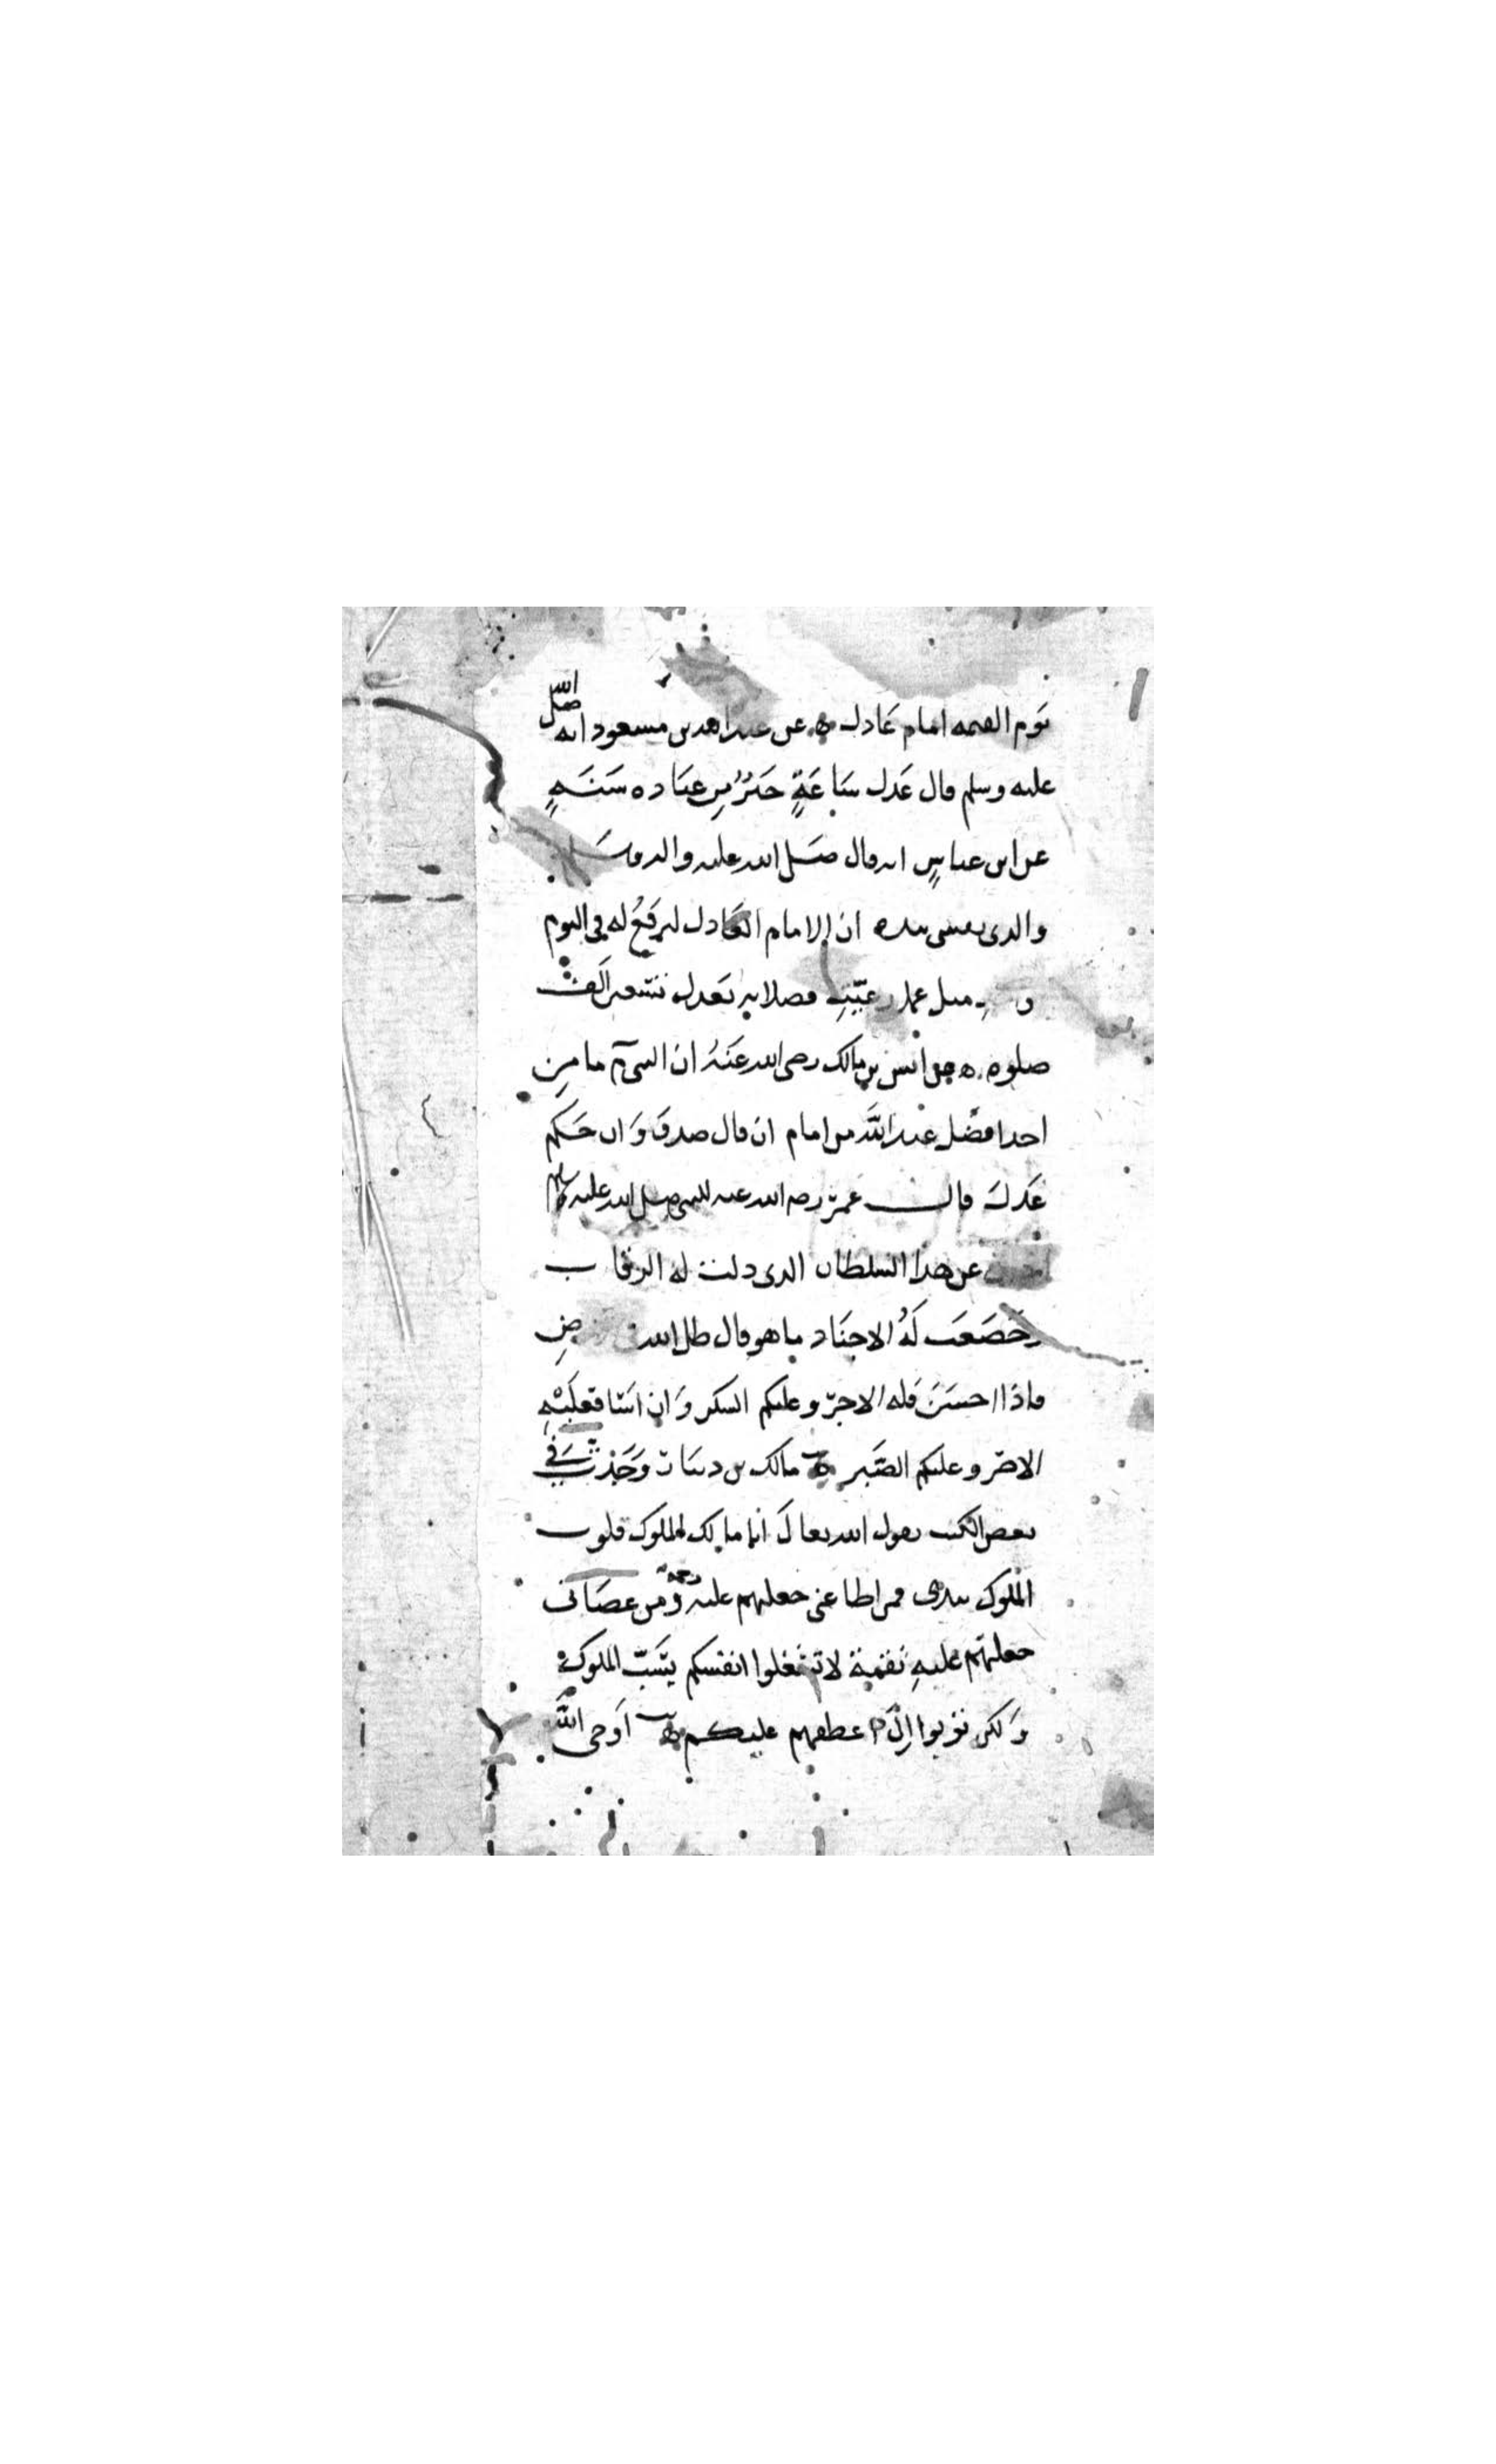 يوم القيمه امام عادل ه عن عبد الله بن مسعود انه صلى الله
عليه وسلم قال عَدل سَاعَةٍ خَيْرٌ مِن عبَاده سَنَةٍ
عن ابن عباسٍ انه قال صَلى الله عليه واله وسَلم
والدى نفسى بيده ان الامام العَادل ليرفَعُ له في اليوم
مثل عمل رعيّتِهِ وصلاته تَعدل تسعين اَلف
صلوه ه عن انس بن مالك رضى الله عَنْهُ ان النبى ما مِن
احد افضَل عند اللَّه من امام ان قال صدق وَان حَكم
عَدلَ قال عمرَ رضى الله عنه للنبى صلى الله عليه وسلم
عن هذا السلطان الذى دلت له الرقاب
وَخضعَت لَهُ الاجنَاد ما هو قال ظل الله
فاذا احسَنَ فله الاجرُ وعليكم الشكر وَان اسَا فعلَيْهِ
الاصر وعليكم الصَبر ه مالك بن دينار وَجَدْتُ فِي
بعض الكتب يقول الله تعالَى انا مالك الملوك قلوب
الملوك بيدى فمن اطاعنى جعلتهم عليه رحمة وَمن عصَانى
جعلتهم عليهِ نقمة لا تشغلوا انفسكم بِسَبّ الملوك
وَلكن توبوا اِلَى اعطفهم عليكم ه اَوحى اللَّه